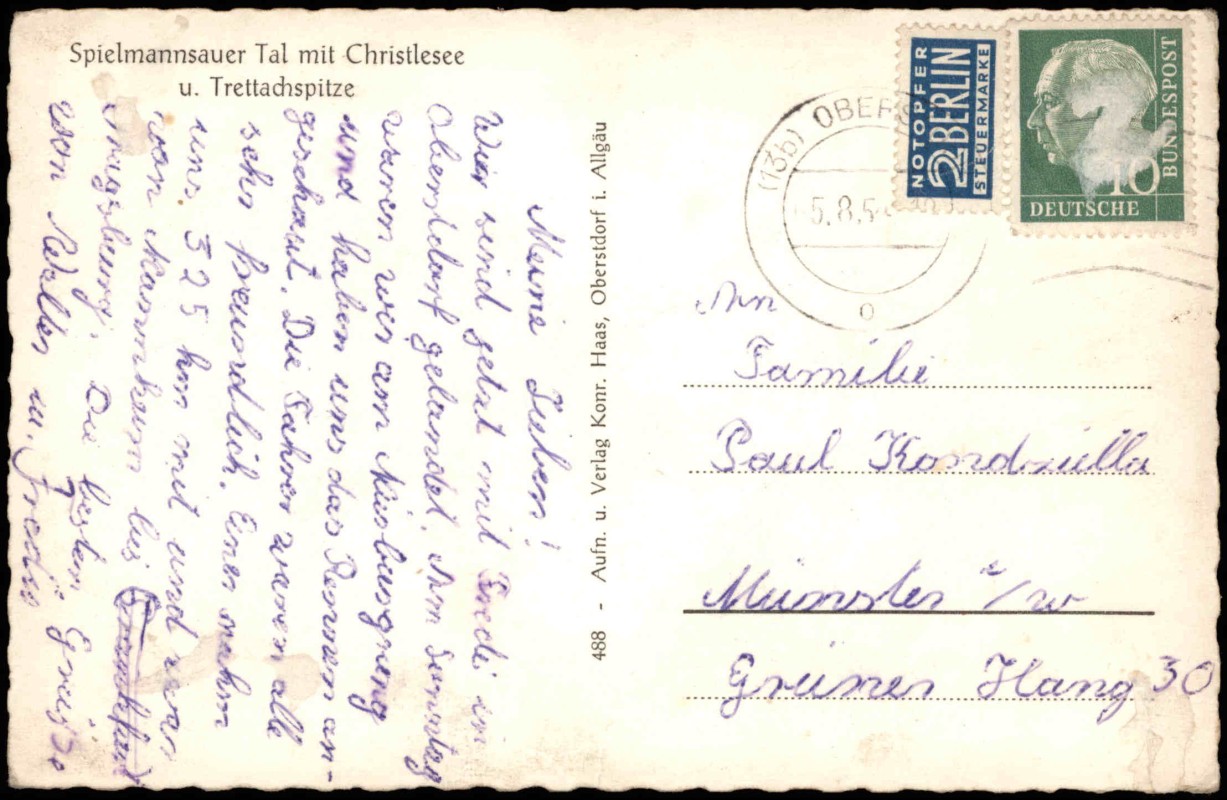 Spielmannsauer Tal mit Christlesee
u. Trettachspitze
Meine Lieben!
Wir sind jetzt mit Fredi in
Oberstdorf gelandet. Am Sonntag
waren wir am Nürburgring
und haben uns das Rennen an-
geschaut. Die Fahrer waren alle
sehr freundlich. Einer nahm
uns 325 km mit und zwar
von Mannheim bis
Augsburg. Die besten Grüße
von Walter u. Fredi
488 - Aufn. u. Verlag Konr. Haas, Oberstdorf i. Allgäu
(13b) OBERS
5.8.5
NOTOPFER
2 BERLIN
STEUERMARKE
10
DEUTSCHE
BUNDESPOST
An
Familie
Paul Kondziella
Münster i/w
Grüner Hang 30